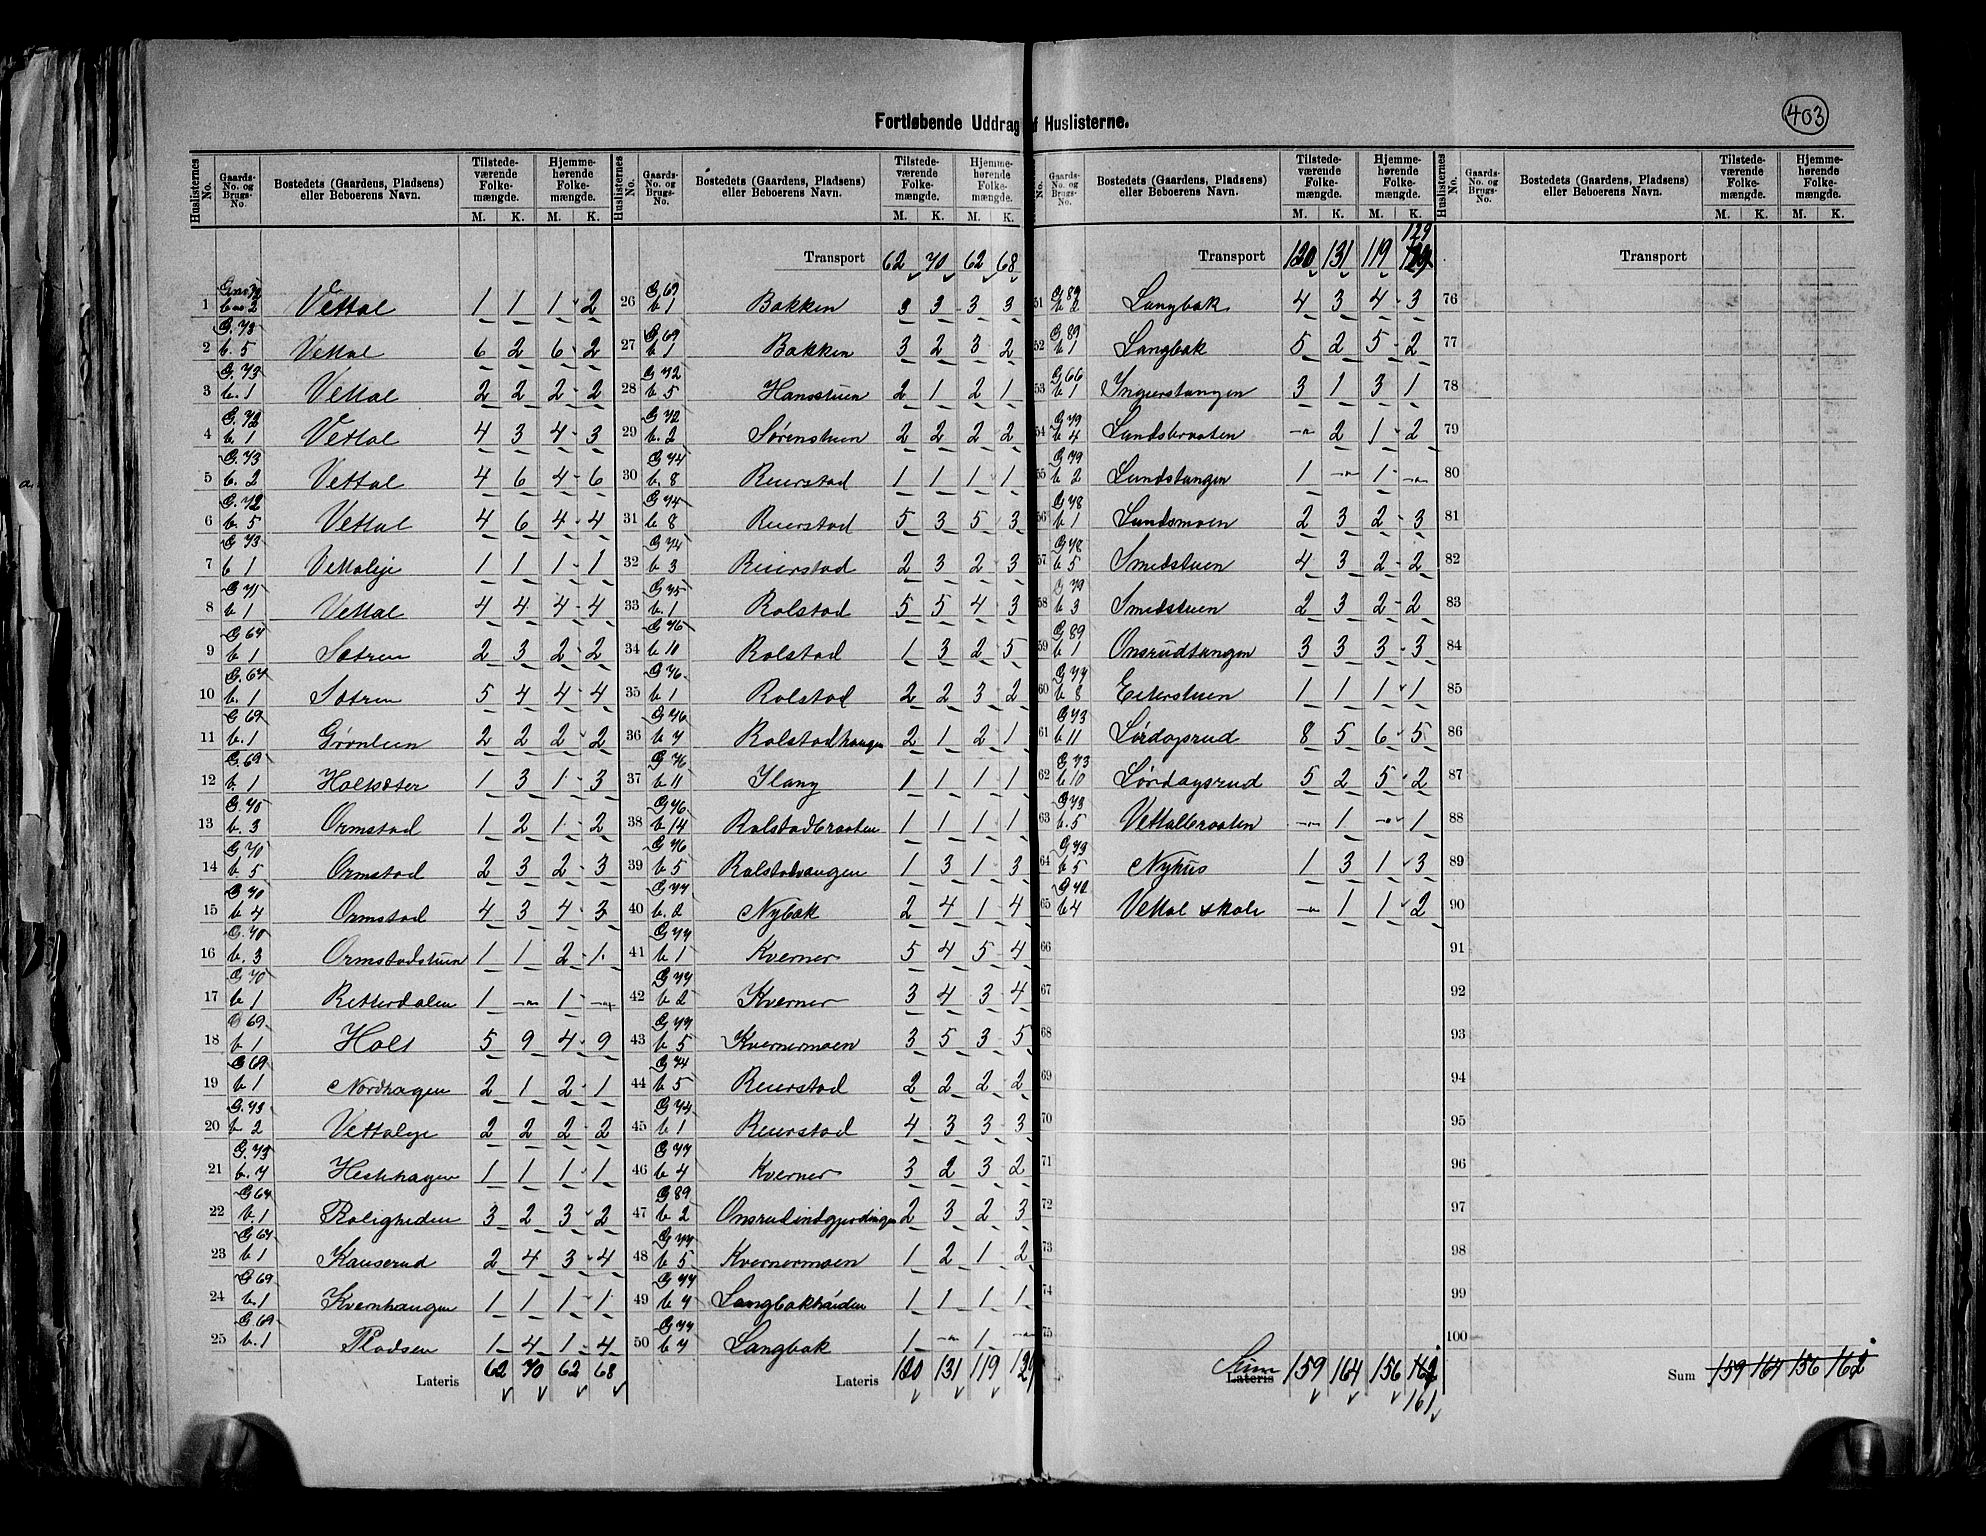 403
Fortløbende Uddrag af Huslisterne.
Huslisternes No. | Gaards-No. og Brugs-No. | Bostedets (Gaardens, Pladsens) eller Beboerens Navn. | Tilstedeværende Folkemængde. M. K. | Hjemmehørende Folkemængde. M. K.
1 G.no 72 b.no 2 Vettal 1 1 1 2
2 G. 73 b. 5 Vettal 6 2 6 2
3 G. 73 b. 1 Vettal 2 2 2 2
4 G. 72 b. 1 Vettal 4 3 4 3
5 G. 73 b. 2 Vettal 4 6 4 6
6 G. 72 b. 5 Vettal 4 6 4 4
7 G. 73 b 1 Vettaleje 1 1 1 1
8 G. 71 b. 1 Vettal 4 4 4 4
9 G 64 b 1 Sætren 2 3 2 2
10 G. 64 b. 1 Sætren 5 4 4 4
11 G 69 b. 1 Grønlien 2 2 2 2
12 G. 69 b. 1 Holtsæter 1 3 1 3
13 G. 70 b. 3 Ormstad 1 2 1 2
14 G. 70 b. 5 Ormstad 2 3 2 3
15 G 70 b. 4 Ormstad 4 3 4 3
16 G. 70 b. 3 Ormstadstuen 1 1 2 1
17 G 70 b 1 Retterdalen 1 -"- 1 -"-
18 G 69. b 1 Holt 5 9 4 9
19 G 69 b 1 Nordhagen 2 1 2 1
20 G. 73 b 2 Vettaleje 2 2 2 2
21 G. 73 b. 7 Hestehagen 1 1 1 1
22 G 64 b. 1 Roligheden 3 2 3 2
23 G. 64 b 1 Kauserud 2 4 3 4
24 G 69 b. 1 Kvernhaugen 1 1 1 1
25 G. 69 b. 1 Pladsen 1 4 1 4
Lateris 62 70 62 68
Huslisternes No. | Gaards-No. og Brugs-No. | Bostedets (Gaardens, Pladsens) eller Beboerens Navn. | Tilstedeværende Folkemængde. M. K. | Hjemmehørende Folkemængde. M. K.
Transport 62 70 62 68
26 G 69 b 1 Bakken 3 3 3 3
27 G 69 b 1 Bakken 3 2 3 2
28 G 72 b 5 Hansstuen 2 1 2 1
29 G 72 b. 2 Sørenstuen 2 2 2 2
30 G 74 b. 8 Reierstad 1 1 1 1
31 G 74 b 8 Reierstad 5 3 5 3
32 G 74 b 3 Reierstad 2 3 2 3
33 G 75 b. 1 Rolstad 5 5 4 3
34 G 76 b 10 Rolstad 1 3 2 5
35 G 76 b 1 Rolstad 2 2 3 2
36 G 76 b 7 Rolstadhaugen 2 1 2 1
37 G 76 b 11 Ilang 1 1 1 1
38 G 76 b 14 Rolstadbraaten 1 1 1 1
39 G 76 b 5 Rolstadvangen 1 3 1 3
40 G 77 b. 2 Nybak 2 4 1 4
41 G 77 b 1 Kverner 5 4 5 4
42 G 77 b 2 Kverner 3 4 3 4
43 G 77 b 5 Kvernermoen 3 5 3 5
44 G 74 b 5 Reierstad 2 2 2 2
45 G 74 b 1 Reierstad 4 3 3 3
46 G 77 b 4 Kverner 3 2 3 2
47 G 89 b 2 Onsrudindgjerdingen 2 3 2 3
48 G 77 b 5 Kvernermoen 1 2 1 2
49 G 77 b 7 Langbakhaiden 1 1 1 1
50 G 77 b 7 Langbak 1 -"- 1 -"-
Lateris 120 131 119 129
No. | Gaards-No. og Brugs-No. | Bostedets (Gaardens, Pladsens) eller Beboerens Navn. | Tilstedeværende Folkemængde. M. K. | Hjemmehørende Folkemængde. M. K.
129
Transport 120 131 119 129
51 G 89 b 2 Langbak 4 3 4 3
52 G 89 b 1 Langbak 5 2 5 2
53 G 66 b 1 Ingierstangen 3 1 3 1
54 G 79 b 4 Lundsbraaten -"- 2 1 2
55 G 79 b 2 Lundstangen 1 -"- 1 -"-
56 G 78 b 1 Lundsmoen 2 3 2 3
57 G 78 b 5 Smedstuen 4 3 2 2
58 G 79 b 3 Smedstuen 2 3 2 2
59 G 89 b 1 Onsrudtangen 3 3 3 3
60 G 77 b 8 Eiterstuen 1 1 1 1
61 G 73 b 11 Lørdagsrud 8 5 6 5
62 G 73 b 10 Lørdagsrud 5 2 5 2
63 G 73 b. 5 Vettalbraaten -"- 1 -"- 1
64 G 73 b 5 Nyhus 1 3 1 3
65 G 72 b 4 Vettal skole -"- 1 1 2
66
67
68
69
70
71
72
73
74
75
Sum Lateris 159 164 156 162
161
Huslisternes No. | Gaards-No. og Brugs-No. | Bostedets (Gaardens, Pladsens) eller Beboerens Navn. | Tilstedeværende Folkemængde. M. K. | Hjemmehørende Folkemængde. M. K.
Transport
76
77
78
79
80
81
82
83
84
85
86
87
88
89
90
91
92
93
94
95
96
97
98
99
100
Sum 159 164 156 162